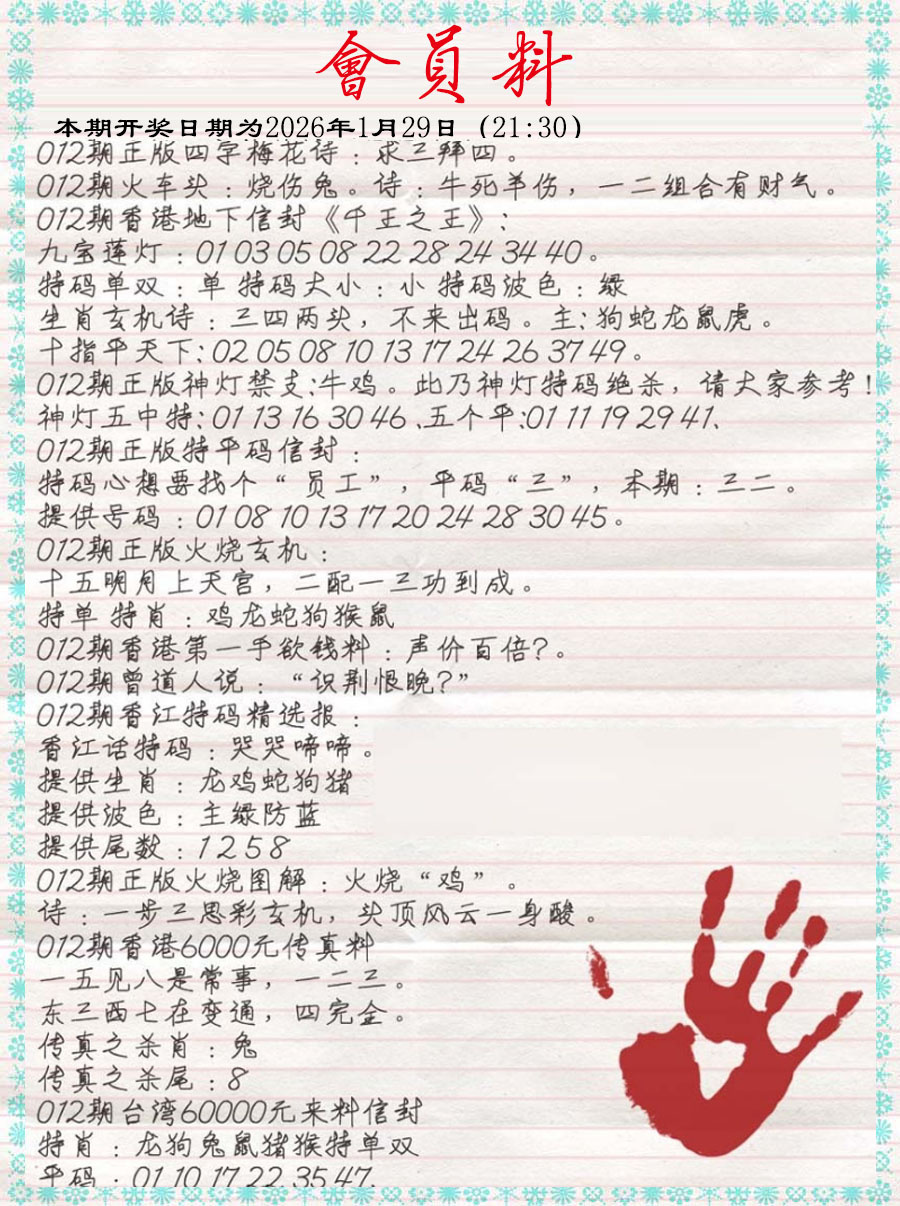 會員料
本期开奖日期为2026年1月29日（21:30）
012期正版四字梅花诗：求三拜四。
012期火车头：烧伤兔。诗：牛死羊伤，一二组合有财气。
012期香港地下信封《千王之王》：
九宝莲灯：01 03 05 08 22 28 24 34 40。
特码单双：单 特码大小：小 特码波色：绿
生肖玄机诗：三四两头，不来出码。主：狗蛇龙鼠虎。
十指平天下：02 05 08 10 13 17 24 26 37 49。
012期正版神灯禁支：牛鸡。此乃神灯特码绝杀，请大家参考！
神灯五中特：01 13 16 30 46 、五个平：01 11 19 29 41、
012期正版特平码信封：
特码心想要找个“员工”，平码“三”，本期：三二。
提供号码：01 08 10 13 17 20 24 28 30 45。
012期正版火烧玄机：
十五明月上天宫，二配一三功到成。
特单 特肖：鸡龙蛇狗猴鼠
012期香港第一手欲钱料：声价百倍？。
012期曾道人说：“识荆恨晚？”
012期香江特码精选报：
香江话特码：哭哭啼啼。
提供生肖：龙鸡蛇狗猪
提供波色：主绿防蓝
提供尾数：1 2 5 8
012期正版火烧图解：火烧“鸡”。
诗：一步三思彩玄机，头顶风云一身酸。
012期香港6000元传真料
一五见八是常事，一二三。
东三西七在变通，四完金。
传真之杀肖：兔
传真之杀尾：8
012期台湾60000元来料信封
特肖：龙狗兔鼠猪猴特单双
平码：01 10 17 22 35 47、